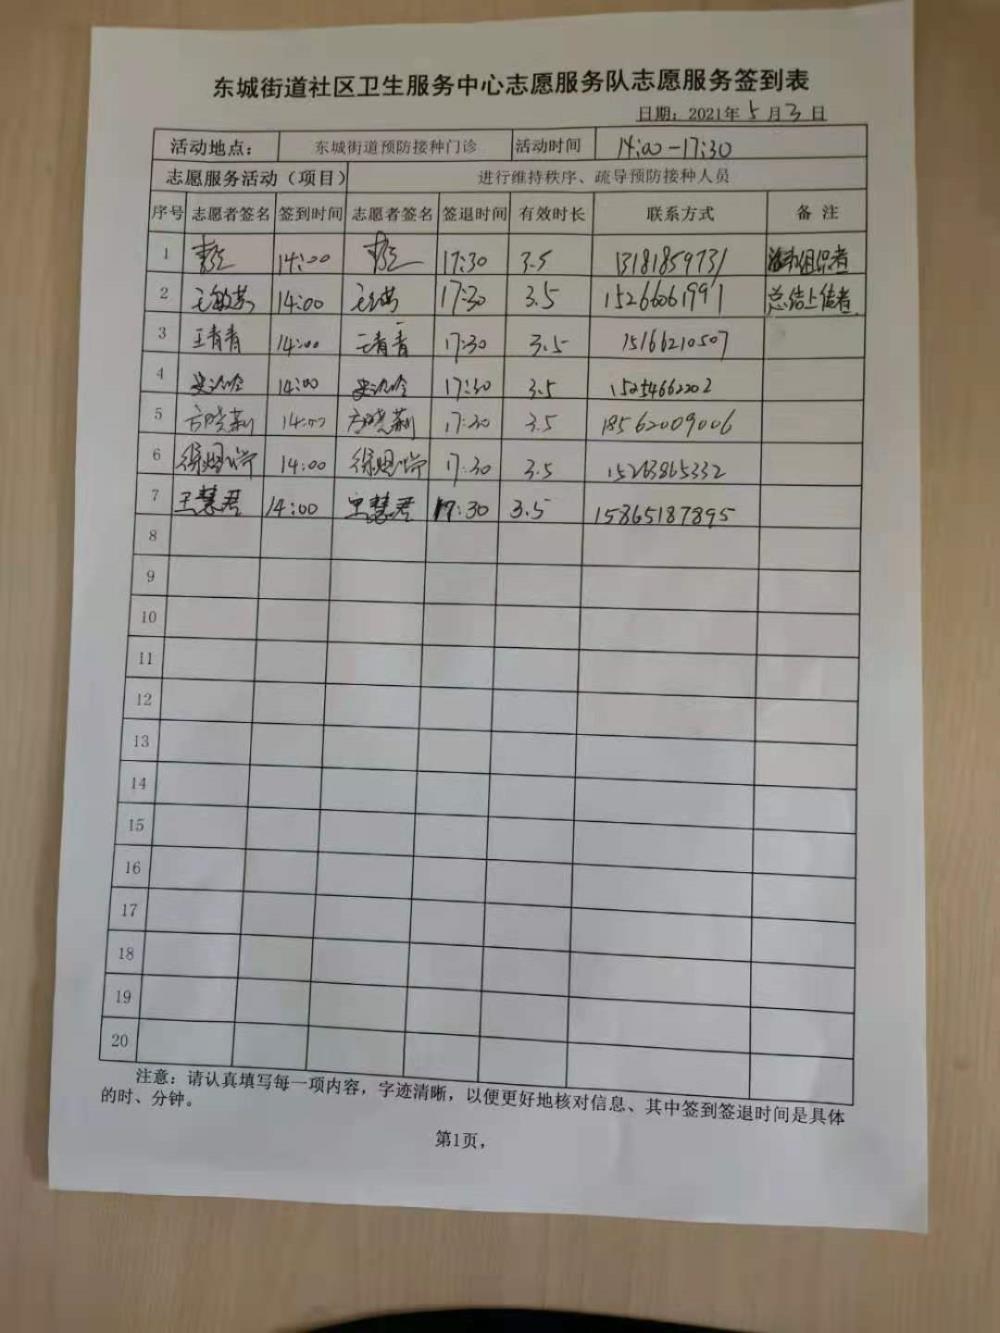 东城街道社区卫生服务中心志愿服务队志愿服务签到表
日期：2021年5月3日
活动地点： 东城街道预防接种门诊 活动时间 14:00-17:30
志愿服务活动（项目） 进行维持秩序、疏导预防接种人员
序号 志愿者签名 签到时间 志愿者签名 签退时间 有效时长 联系方式 备 注
1 14:00 17:30 3.5 13181859731 组织者
2 王敏燕 14:00 17:30 3.5 15266061991 总结上传者
3 王青青 14:00 王青青 17:30 3.5 15166210507
4 14:00 17:30 3.5 15254662202
5 方晓莉 14:00 方晓莉 17:30 3.5 18562009006
6 14:00 17:30 3.5 15263865332
7 王慧君 14:00 王慧君 17:30 3.5 15865187895
8
9
10
11
12
13
14
15
16
17
18
19
20
注意：请认真填写每一项内容，字迹清晰，以便更好地核对信息、其中签到签退时间是具体
的时、分钟。
第1页，